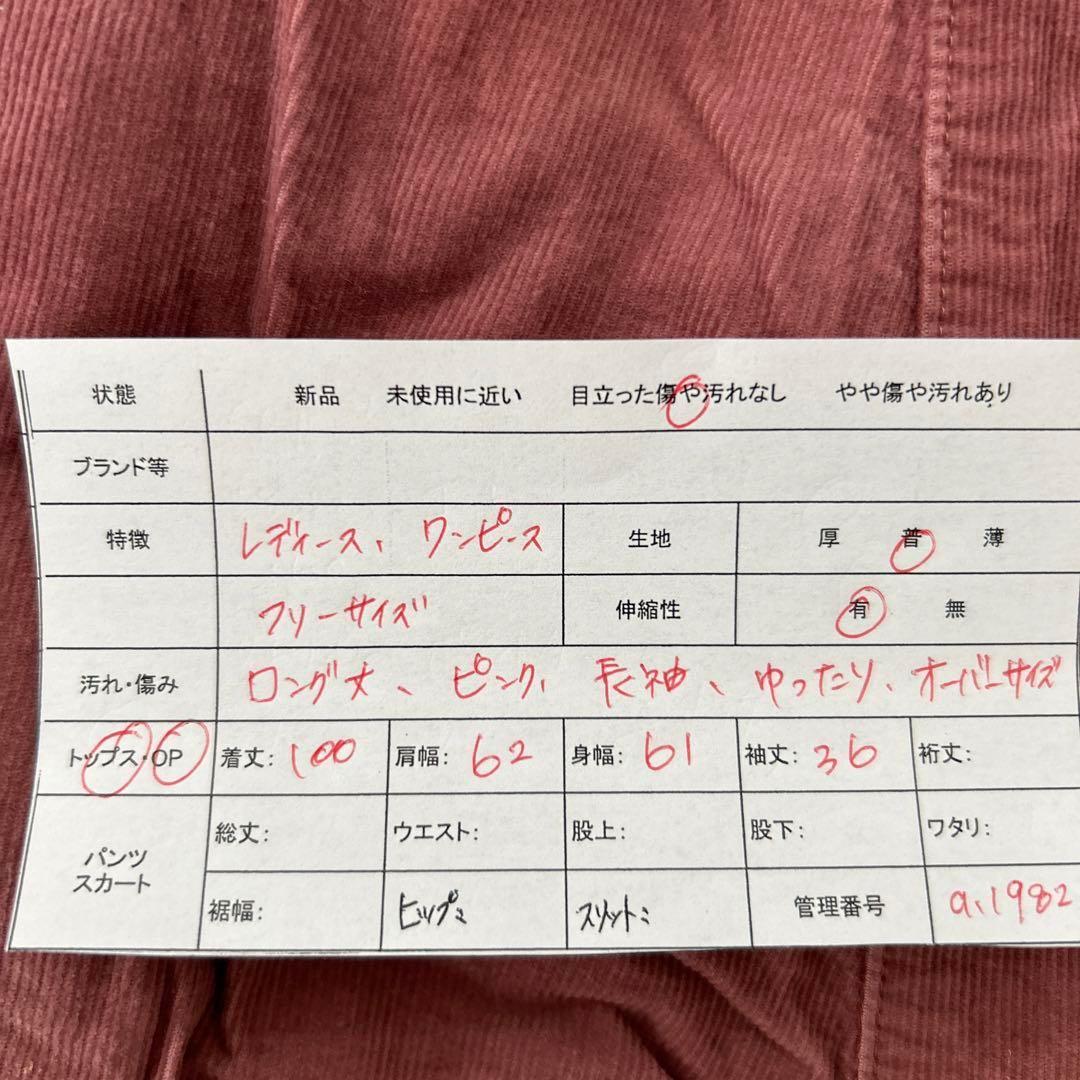 状態 新品 未使用に近い 目立った傷や汚れなし やや傷や汚れあり
ブランド等
特徴 レディース、ワンピース 生地 厚 普 薄
フリーサイズ 伸縮性 有 無
汚れ・傷み ロング丈、ピンク、長袖、ゆったり、オーバーサイズ
トップス・OP 着丈: 100 肩幅: 62 身幅: 61 袖丈: 36 裄丈:
パンツ スカート 総丈: ウエスト: 股上: 股下: ワタリ:
裾幅: ヒップ: スリット: 管理番号 a.1982